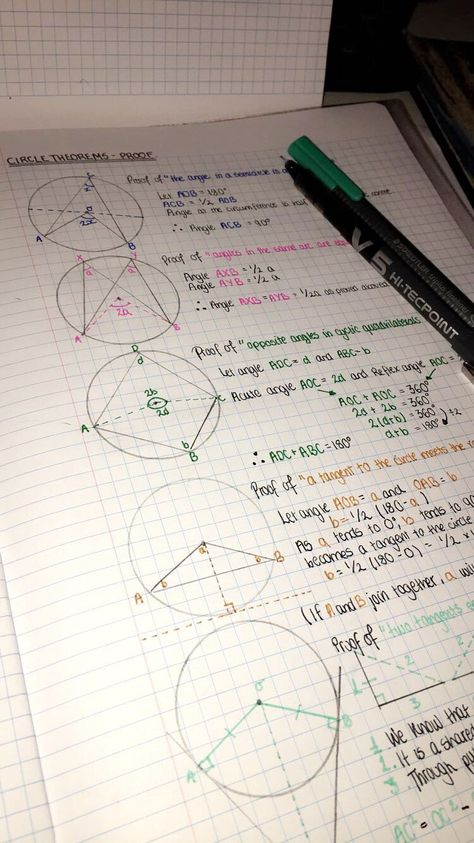 CIRCLE THEOREMS - PROOF
Proof of "the angle in a semicircle is
Let AOB = 180°
ACB = 1/2 AOB
Angle at the circumference is half centre
∴ Angle ACB = 90°
A
B
2x
a
Proof of "angles in the same arc are
Angle AXB = 1/2 a
Angle AYB = 1/2 a
∴ Angle AXB = AYB = 1/2a as proved
X
Y
a
a
2a
A
B
Proof of "opposite angles in cyclic quadrilaterals
Let angle ADC = d and ABC = b
Acuse angle AOC = 2d and Reflex angle AOC =
AOC + AOC = 360°
2d + 2b = 360°
2(d+b) = 360°
d+b = 180°
÷2
∴ ADC + ABC = 180°
D
d
2b
2d
A
C
b
B
Proof of "a tangent to the circle meets the
Let angle AOB = a and OAB = b
b = 1/2 (180 - a)
As a tends to 0°, b tends to
becomes a tangent to the circle
b = 1/2 (180 - 0) = 1/2 x
(If A and B join together, a
a
b
b
A
B
Proof of "two tangents
2
2
1
3
O
A
B
1. We know that
2. It is a shared
3. Through
AC² = OC² -
V5
HI-TECPOINT